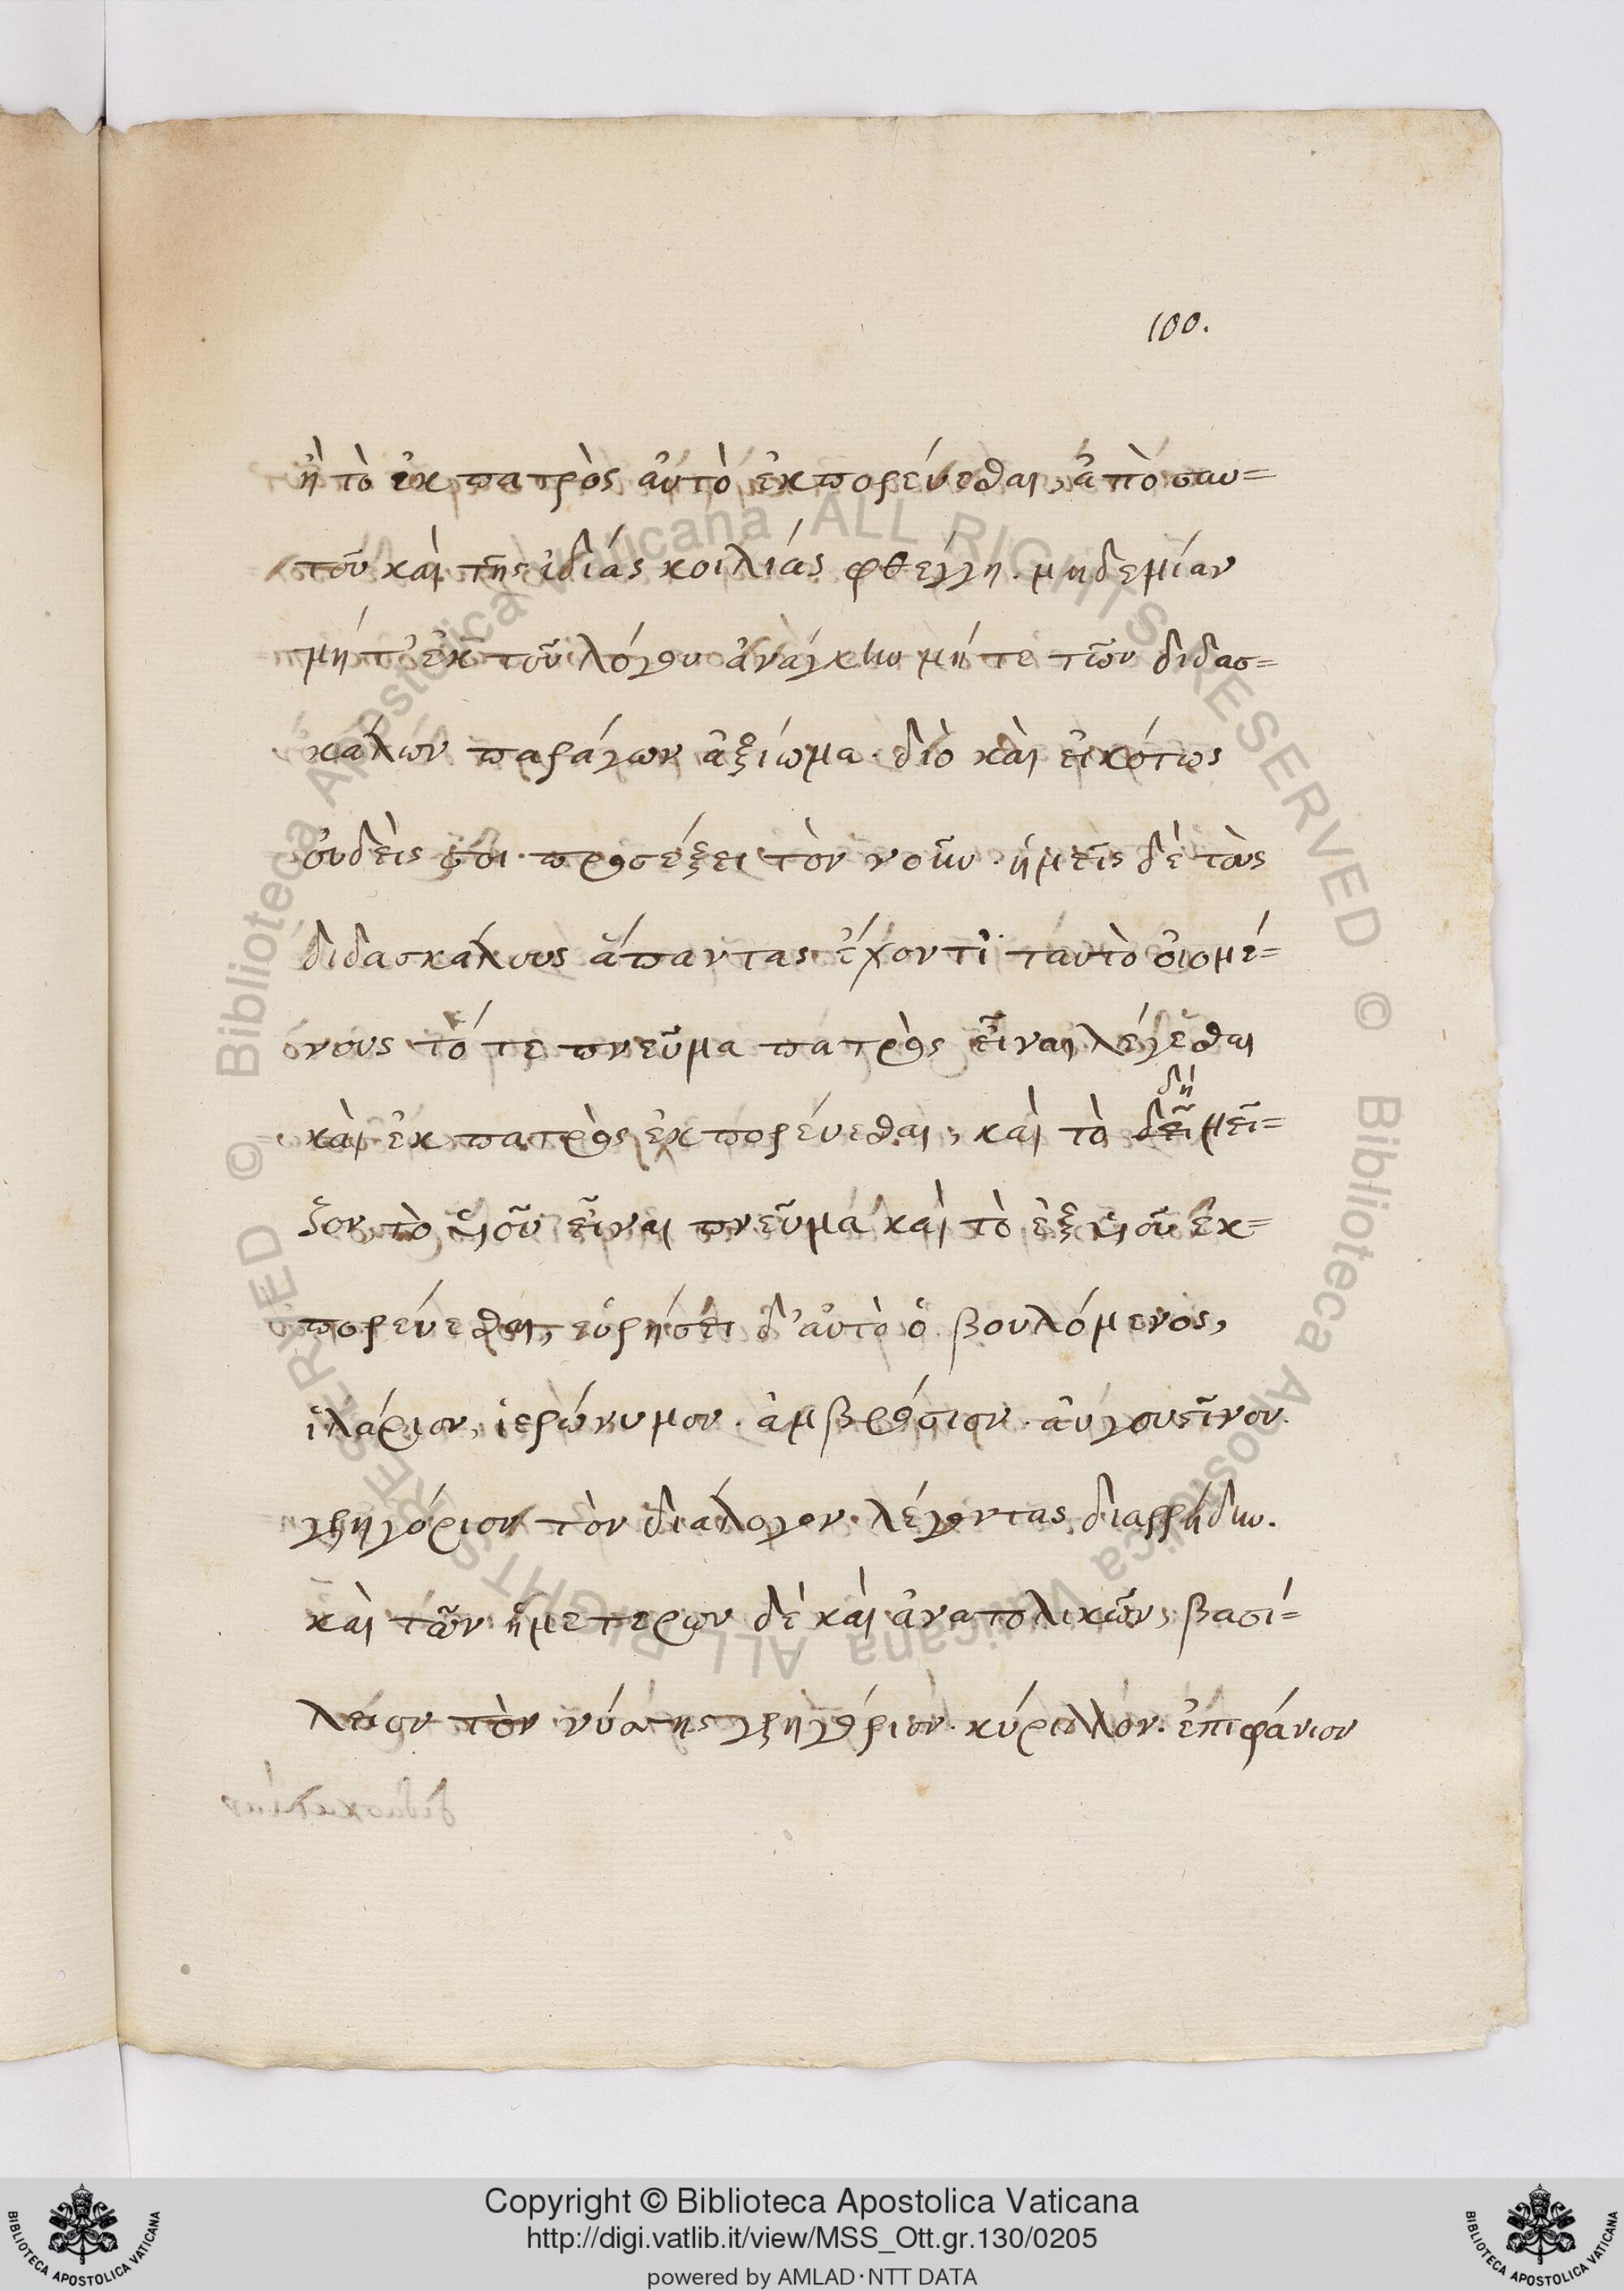 100.
ἢ τὸ ἐκ πατρὸς αὐτὸ ἐκπορεύεσθαι, ἀπὸ σαυ=
τοῦ καὶ τῆς ἰδίας κοιλίας φθέγγη. μηδεμίαν
μήτ' ἐκ τοῦ λόγου ἀνάγκην μήτε τῶν διδασ=
κάλων παράγων ἀξίωμα· διὸ καὶ εἰκότως
οὐδείς σοι προσέξει τὸν νοῦν. ἡμεῖς δὲ τοὺς
διδασκάλους ἅπαντας ἔχοντι ταυτὸ οἰομέ=
νους τό τε πνεῦμα πατρὸς εἶναι λέγεσθαι
καὶ ἐκ πατρὸς ἐκπορεύεσθαι, καὶ τὸ δεῖ δὴ μεῖ=
ζον, τὸ υἱοῦ εἶναι πνεῦμα καὶ τὸ ἐξ υἱοῦ ἐκ=
πορεύεσθαι, εὑρήσει δ' αὐτὸ ὁ βουλόμενος,
ἱλάριον, ἱερώνυμον. ἀμβρόσιον. αὐγουστῖνον.
γρηγόριον τὸν διάλογον. λέγοντας διαρρήδην.
καὶ τῶν ἡμετέρων δὲ καὶ ἀνατολικῶν, βασί=
λειον τὸν νύσης γρηγόριον. κύριλλον. ἐπιφάνιον
© Biblioteca Apostolica Vaticana ALL RIGHTS RESERVED © Biblioteca Apostolica Vaticana ALL RIGHTS RESERVED
Copyright © Biblioteca Apostolica Vaticana
http://digi.vatlib.it/view/MSS_Ott.gr.130/0205
powered by AMLAD·NTT DATA
BIBLIOTECA APOSTOLICA VATICANA
BIBLIOTECA APOSTOLICA VATICANA